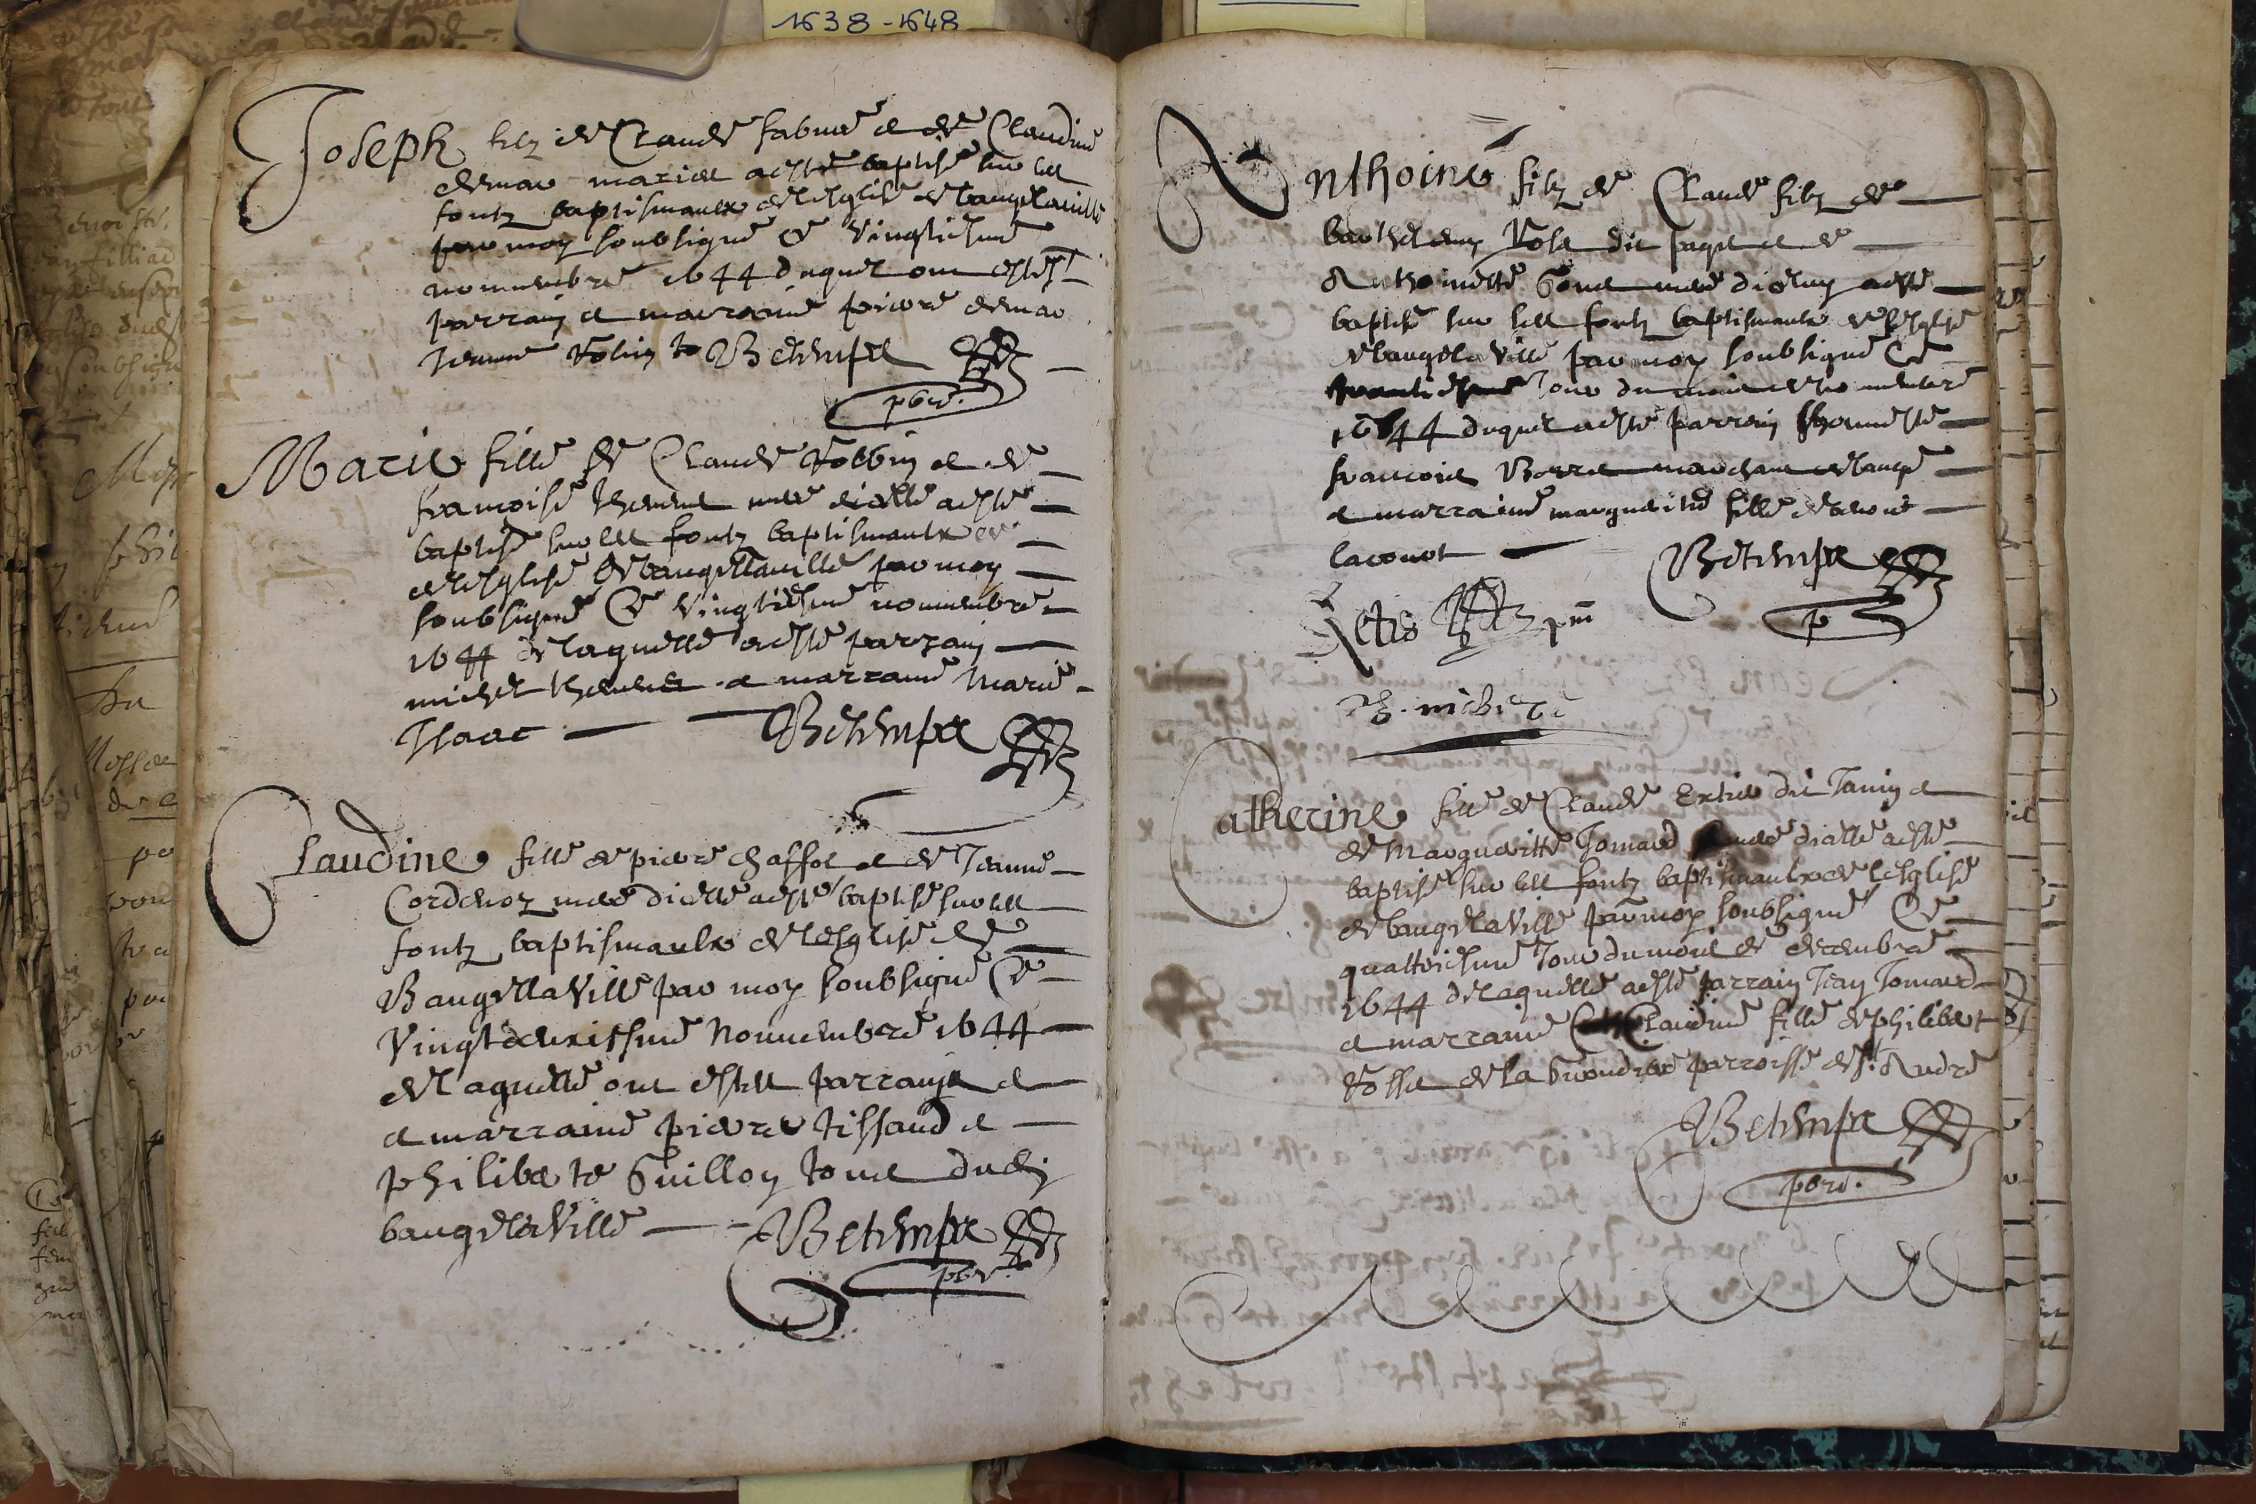 1638-1648
Joseph filz de Claude fabure et de Claudine
demar mariee a esté baptisé sur les
fontz baptismaulx de lesglise de baugé la ville
par moy soubsigné ce vingtiesme
nouuembre 1644 duquel ont estés
parrain et marraine pierre demar
Jeanne Robin Bethimpes
pbre.
Marie fille de Claude Robbin et de
francoise theuenet mere dicelle a esté
baptisé sur les fontz baptismaulx de
de lesglise de baugé la ville par moy
soubsigné Ce vingtiesme nouuembre
1644 de laquelle a esté parrain
michel theuenet et marraine Marie
Isaac Bethimpes
Claudine fille de pierre chaffot et de Jeanne
Cordenoz mere dicelle a esté baptisé sur les
fontz baptismaulx de lesglise de
Baugé la Ville par moy soubsigné Ce
Vingtdeuxissme Nouuembre 1644
de laquelle ont estes parrain et
et marraine pierre tissaud et
philiberte Guillon tous dudi
baugé la Ville Bethimpes
pbr.
Anthoine filz de Claude filz de
barthelemy Rose dit page et de
Anthoinette mere diceluy a esté
baptisé sur les fontz baptismaulx de lesglise
de baugé la Ville par moy soubsigné Ce
Jour du mois de nouuembre
1644 duquel a esté parrain honneste
francois Borre marchant de baugé
et marraine marguerite fille de benoit
laconot Bethimpes
p
Catherine fille de Claude dit Janin et
de Margueritte Tomard mere dicelle a esté
baptisé sur les fontz baptismaulx de lesglise
de baugé la Ville par moy soubsigné Ce
quattriesme Jour du mois de decembre
1644 de laquelle a esté parrain Jean Tomard
et marraine Claudine fille de philibert
Rosse de la parroisse de st Andre
Bethimpes
pbre.